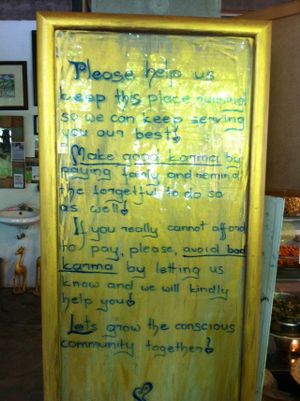 Please help us
keep this place running
so we can keep serving
you our best!
Make good karma by
paying fairly and remind
the forgetful to do so
as well!
If you really cannot afford
to pay, please, avoid bad
karma by letting us
know and we will kindly
help you!
Lets grow the conscious
community together!